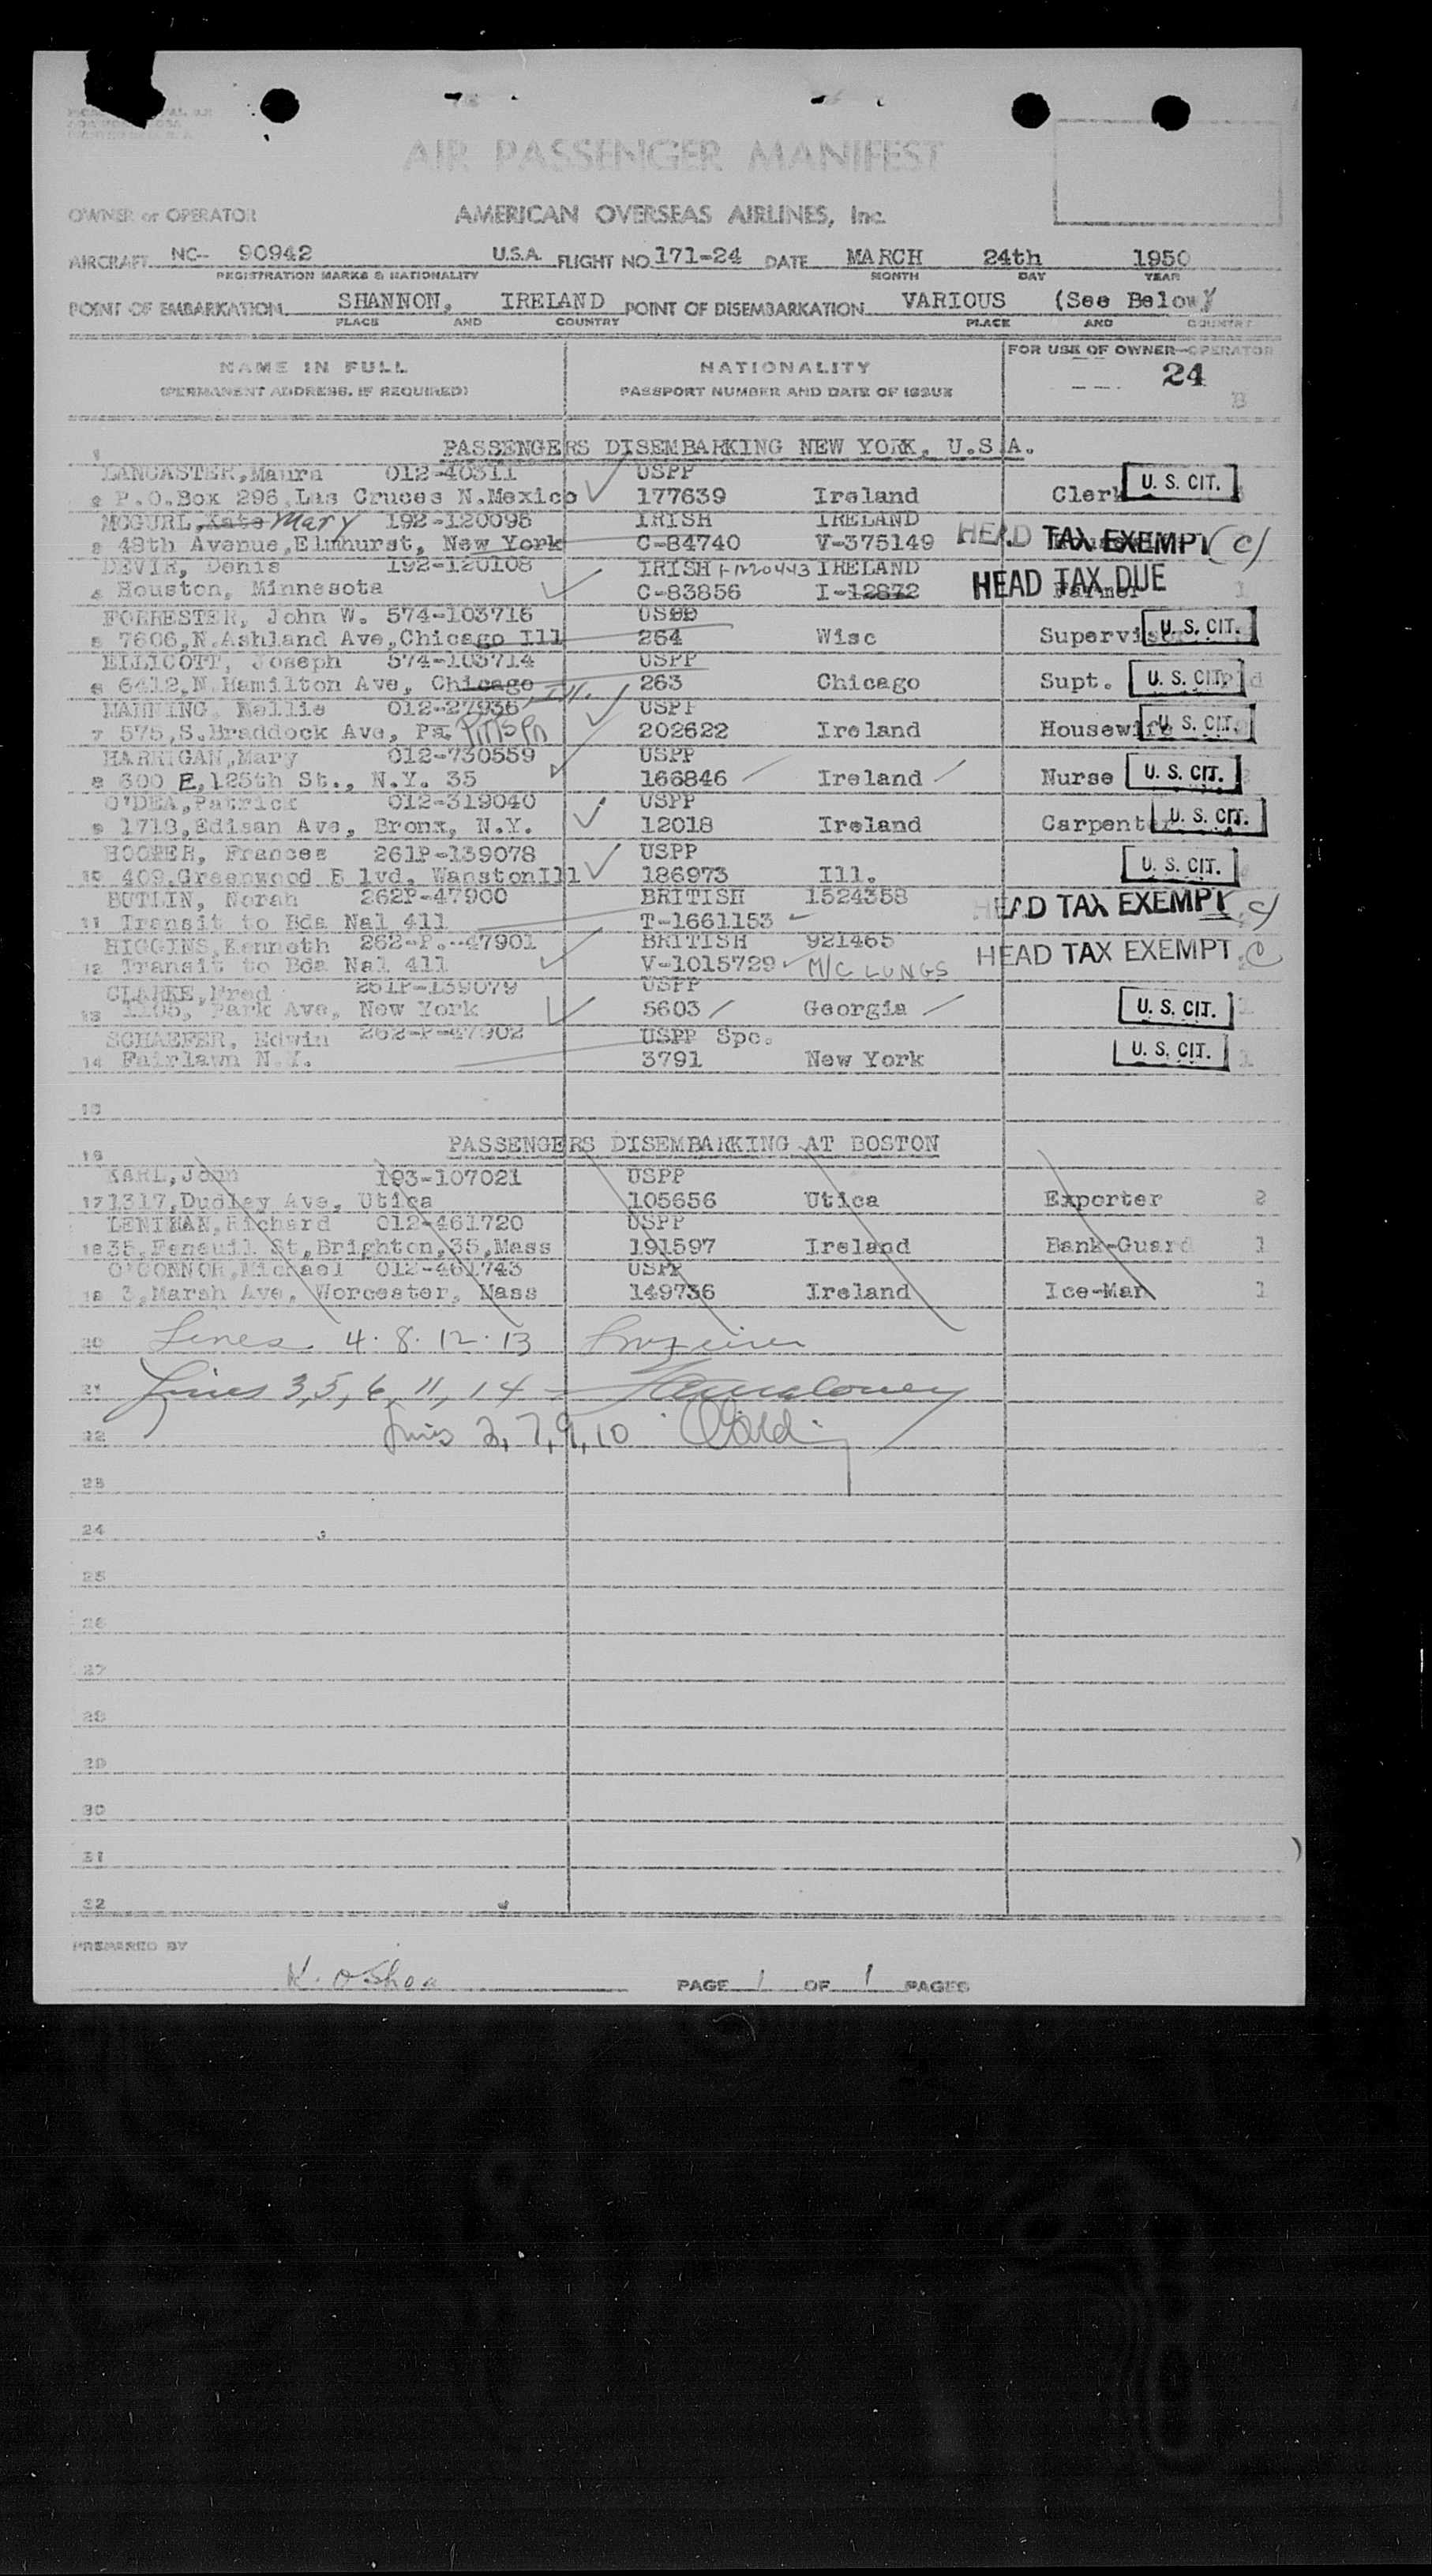 AIR PASSENGER MANIFEST
OWNER or OPERATOR AMERICAN OVERSEAS AIRLINES, Inc.
AIRCRAFT NC-- 90942 U.S.A. FLIGHT NO. 171-24 DATE MARCH 24th 1950
REGISTRATION MARKS & NATIONALITY MONTH DAY YEAR
POINT OF EMBARKATION SHANNON, IRELAND POINT OF DISEMBARKATION VARIOUS (See Below)
PLACE AND COUNTRY PLACE AND COUNTRY
NAME IN FULL NATIONALITY FOR USE OF OWNER-OPERATOR
(PERMANENT ADDRESS, IF REQUIRED) PASSPORT NUMBER AND DATE OF ISSUE 24
B
1 PASSENGERS DISEMBARKING NEW YORK, U.S.A.
LANCASTER, Maura 012-40311 USPP
2 P.O.Box 296, Las Cruces N.Mexico 177639 Ireland Clerk U. S. CIT.
MCGURL, Kate Mary 192-120098 IRISH IRELAND
3 48th Avenue, Elmhurst, New York C-84740 V-375149 HEAD TAX EXEMPT (C)
DEVIR, Denis 192-120108 IRISH IRELAND
4 Houston, Minnesota C-83856 I-12872 HEAD TAX DUE Farmer 1
FORRESTER, John W. 574-103716
5 7606, N. Ashland Ave, Chicago Ill 264 Wisc Supervisor U. S. CIT.
ELLICOTT, Joseph 574-103714 USPP
6 6412, N. Hamilton Ave, Chicago Ill. 263 Chicago Supt. U. S. CIT.
MANNING, Nellie 012-27936 USPP
7 575, S. Braddock Ave, Pa. 202622 Ireland Housewife U. S. CIT.
HARRIGAN, Mary 012-730559 USPP
8 600 E, 125th St., N.Y. 35 166846 Ireland Nurse U. S. CIT.
O'DEA, Patrick 012-319040 USPP
9 1718, Edisan Ave, Bronx, N.Y. 12018 Ireland Carpenter U. S. CIT.
HOOPER, Frances 261P-139078 USPP
10 409, Greenwood B lvd. Wanston Ill 186973 Ill. U. S. CIT.
BUTLIN, Norah 262P-47900 BRITISH 1524358
11 Transit to Bda Nal 411 T-1661153 HEAD TAX EXEMPT (C)
HIGGINS, Kenneth 262-P.-47901 BRITISH 921465
12 Transit to Bda Nal 411 V-1015729 M/C LUNGS HEAD TAX EXEMPT C
CLARKE, Fred 261P-139079 USPP
13 1105, Park Ave, New York 5603 Georgia U. S. CIT. 1
SCHAEFER, Edwin 262-P-47902 USPP Spc.
14 Fairlawn N.Y. 3791 New York U. S. CIT. 1
15
16 PASSENGERS DISEMBARKING AT BOSTON
KARL, John 193-107021 USPP
17 1317, Dudley Ave, Utica 105656 Utica Exporter 2
LENIHAN, Richard 012-461720 USPP
18 35, Feneuil St, Brighton, 35, Mass 191597 Ireland Bank-Guard 1
O'CONNOR, Michael 012-461743 USPP
19 3, Marsh Ave, Worcester, Mass 149736 Ireland Ice-Man 1
20 Lines 4. 8. 12. 13
21 Lines 3, 5, 6, 11, 14
22 Lines 2, 7, 9, 10
23
24
25
26
27
28
29
30
31
32
PREPARED BY
K. O'Shea PAGE 1 OF 1 PAGES